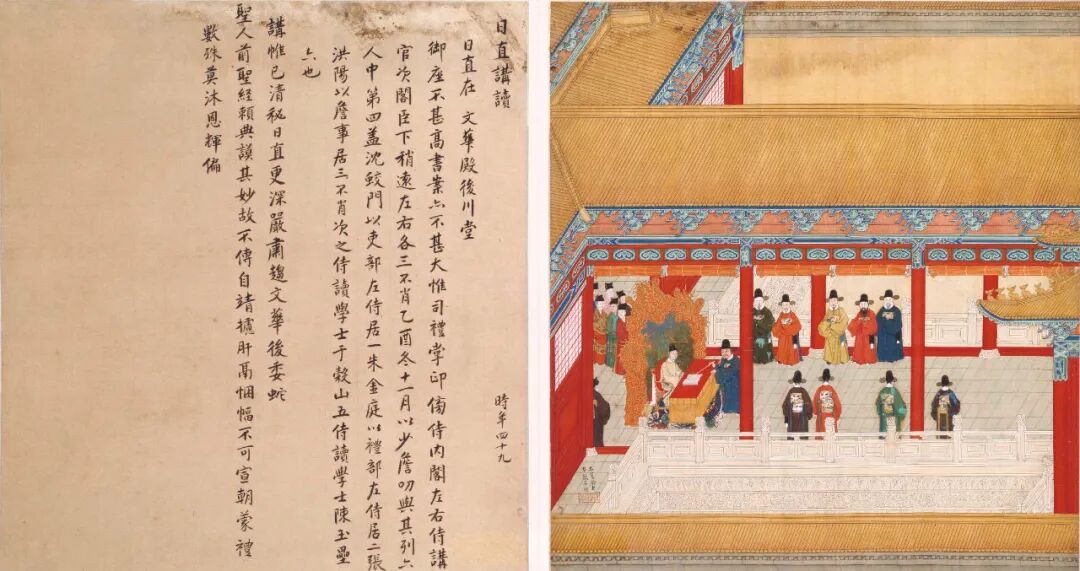 日直講讀
時年四十九
日直在 文華殿後川堂
御座不甚高書案亦不甚大惟司禮掌印傍侍內閣左右侍講
官次閣臣下稍遠左右各三不肖乙酉冬十一月以少詹叨與其列六
人中第四蓋沈蛟門以吏部左侍居一朱金庭以禮部左侍居二張
洪陽以詹事居三不肖次之侍讀學士于穀山五侍讀學士陳玉壘
六也
講帷已清秘日直更深嚴肅趨文華後委蛇
聖人前聖經賴典謨其妙故不傳自靖攄肝鬲悃愊不可宣朝蒙禮
數殊莫沐恩輝偏